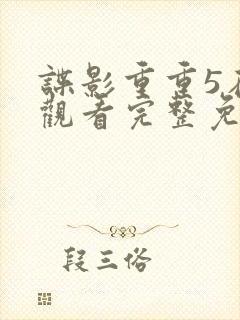 諜影重重5
觀看完整免
段三俗